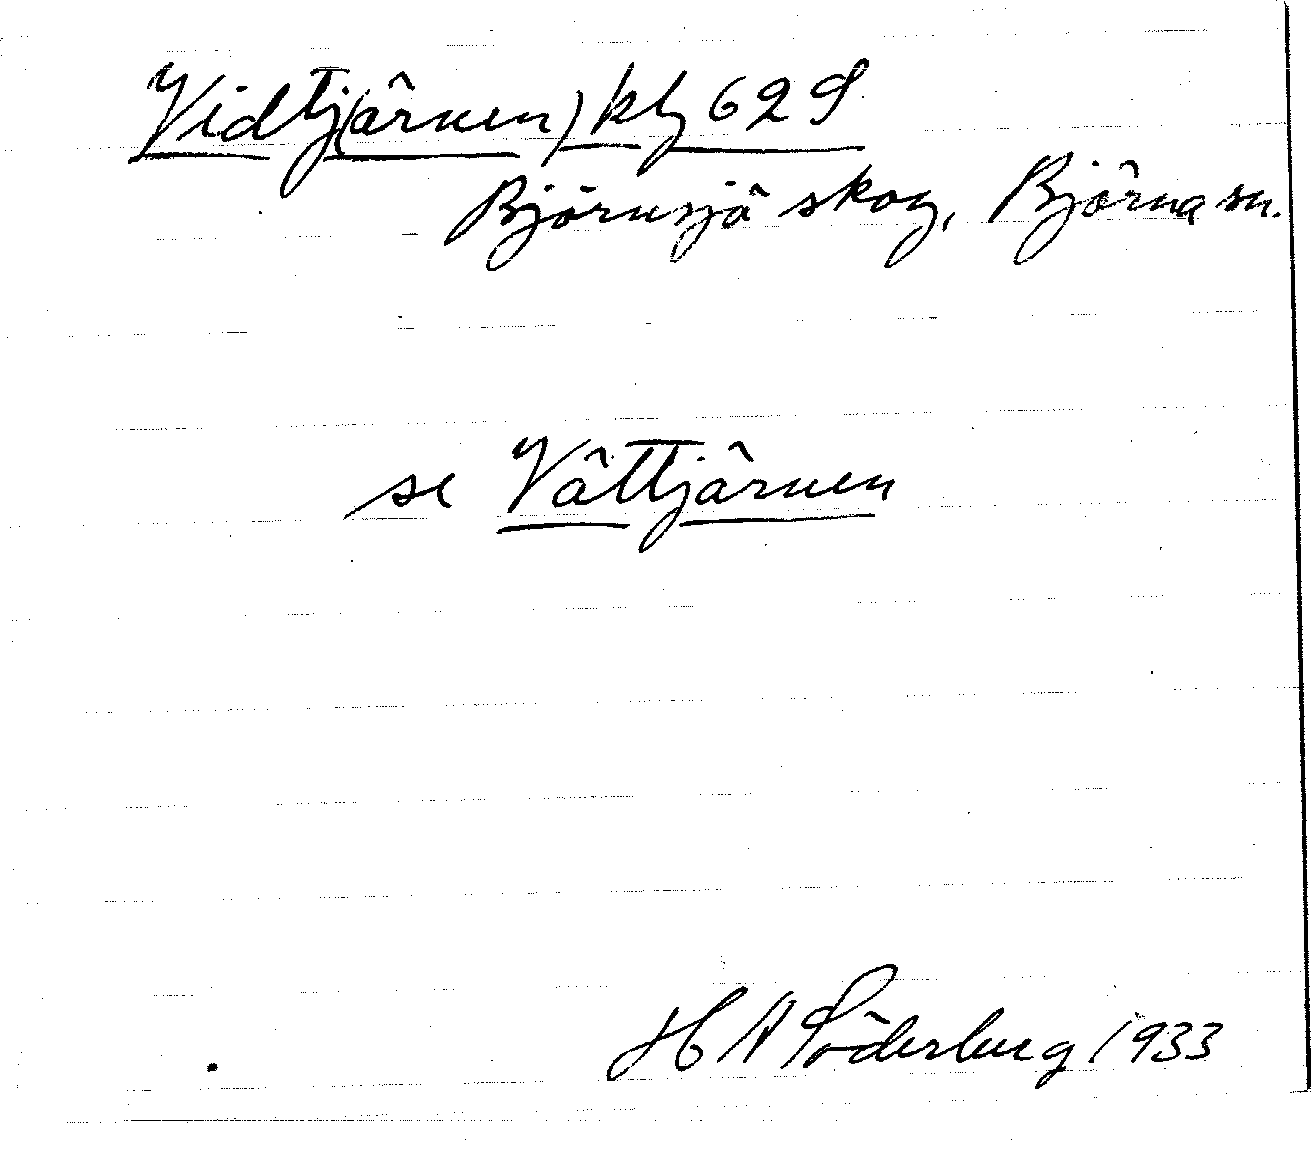 Vidtj(ärnen) kbg 629
Björnsjö skog, Björna sn.
se Vättjärnen
H A Söderberg 1933